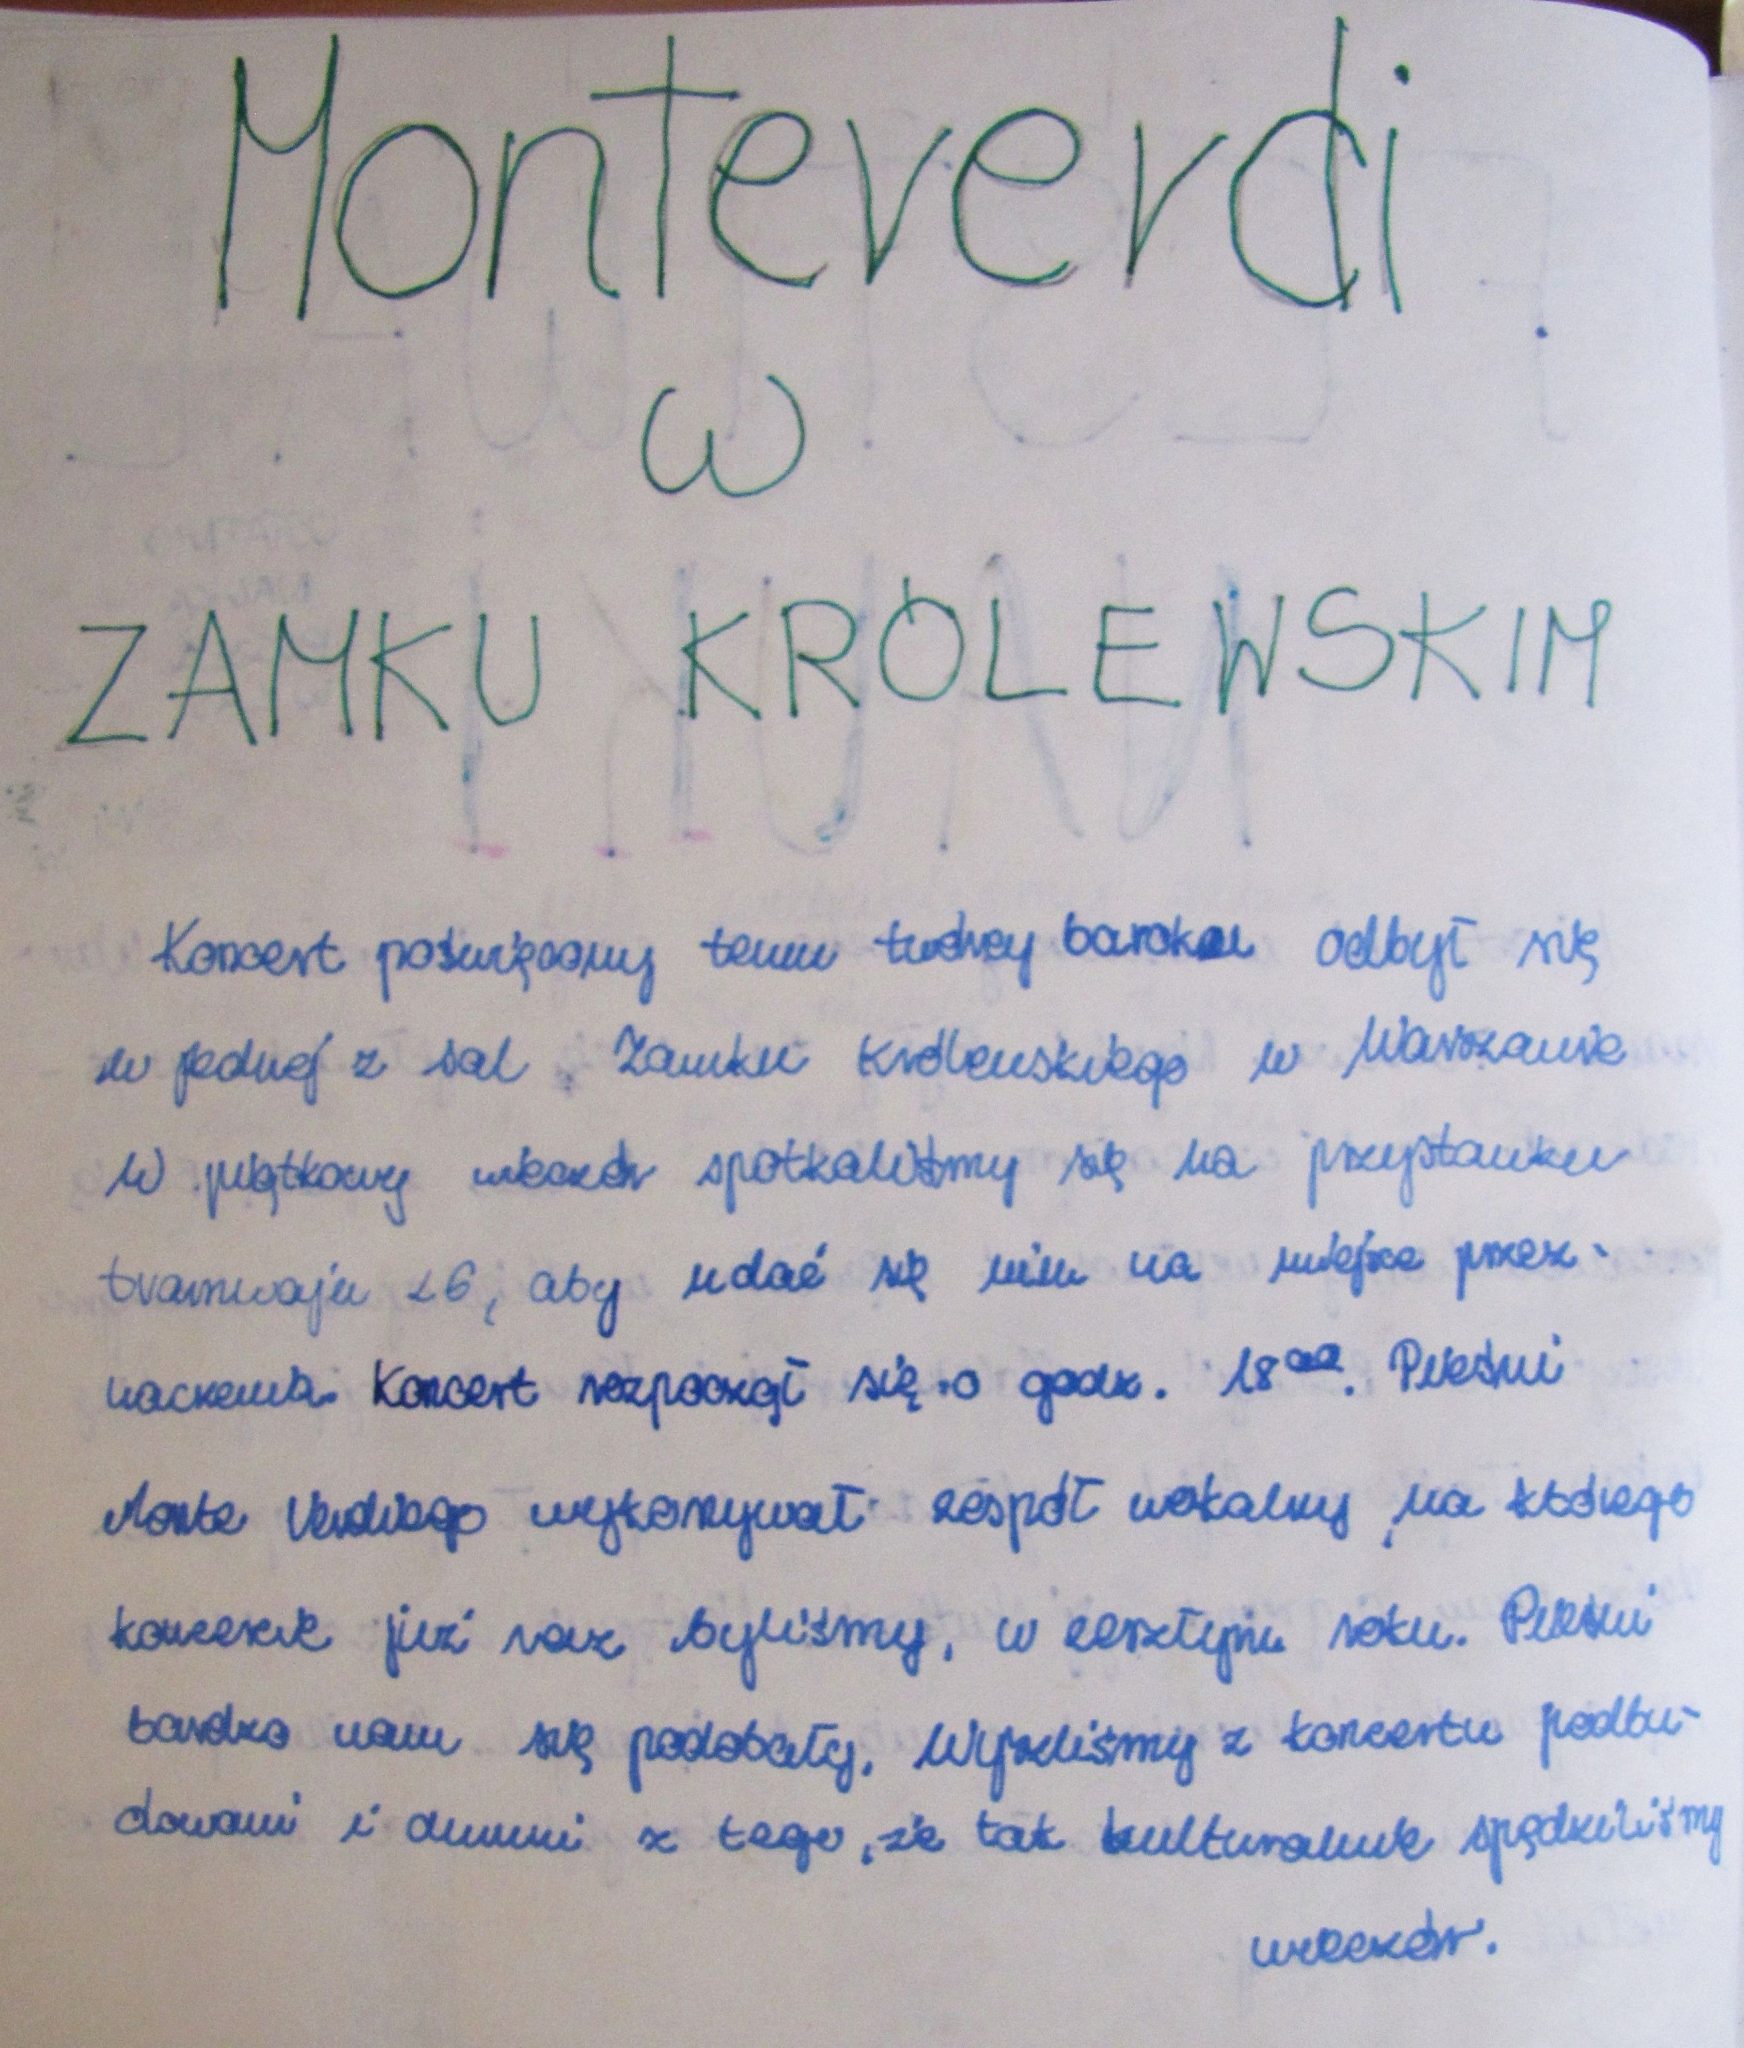 Monteverdi
w
ZAMKU KRÓLEWSKIM
Koncert poświęcony temu twórcy baroku odbył się
w jednej z sal Zamku Królewskiego w Warszawie
W piątkowy wieczór spotkaliśmy się na przystanku
tramwaju 26, aby udać się nim na miejsce przez-
naczenia. Koncert rozpoczął się o godz. 18⁰⁰. Pieśni
Monte Verdiego wykonywał zespół wokalny, na którego
koncercie już raz byliśmy, w zeszłym roku. Pieśni
bardzo nam się podobały. Wyszliśmy z koncertu podbu-
dowani i dumni z tego, że tak kulturalnie spędziliśmy
wieczór.